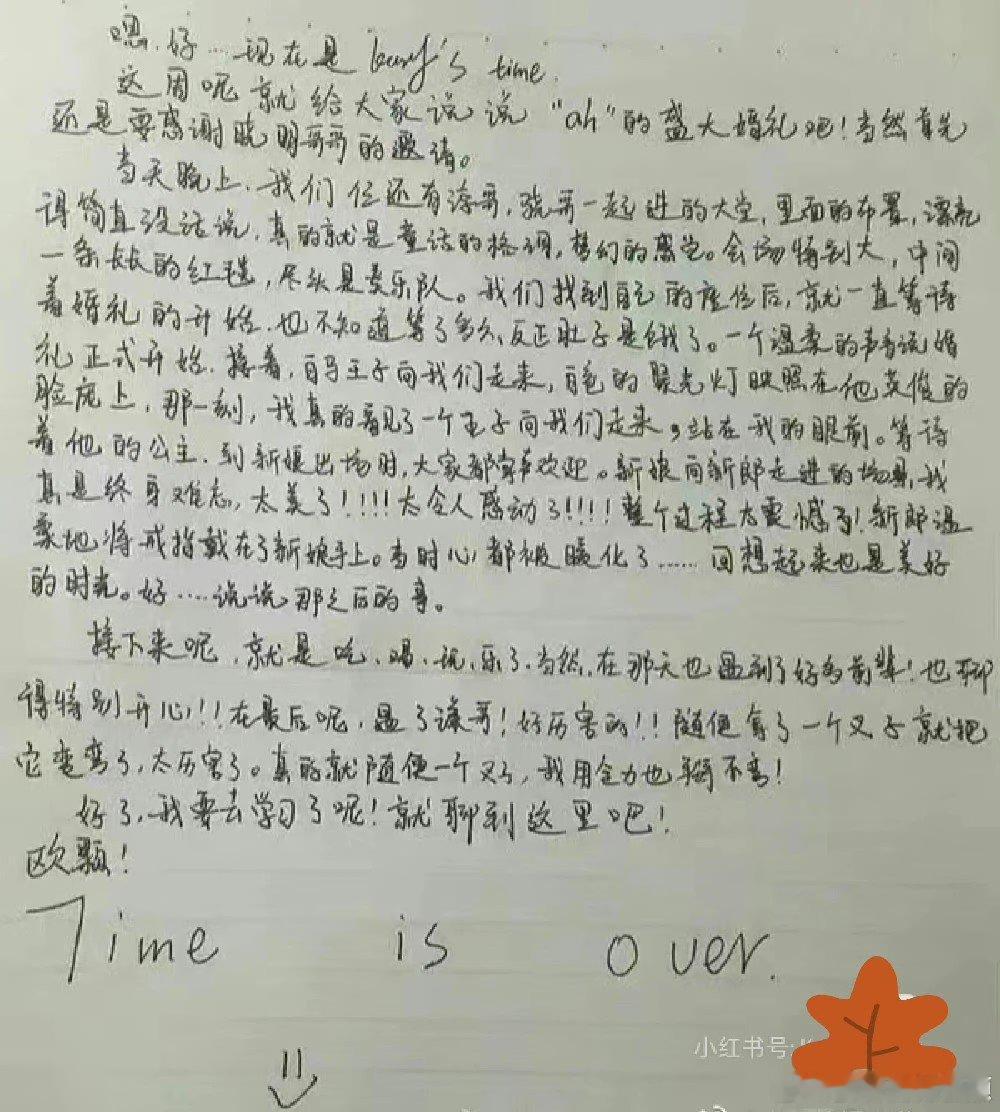 嗯,好…现在是 karry's time.
这周呢就给大家说说“ah”的盛大婚礼吧!当然首先
还是要感谢晓明哥哥的邀请。
当天晚上,我们仨还有涛哥,骁哥一起进的大堂,里面的布置,漂亮
得简直没话说,真的就是童话的格调,梦幻的感觉。会场特别大,中间
一条长长的红毯,尽头是奏乐队。我们找到自己的座位后,就一直等待
着婚礼的开始,也不知道等了多久,反正肚子是饿了。一个温柔的声音说婚
礼正式开始,接着,白马王子向我们走来,白色的聚光灯映照在他英俊的
脸庞上,那一刻,我真的看见了一个王子向我们走来,站在我的眼前。等待
着他的公主,到新娘出场时,大家都掌声欢迎。新娘向新郎走进的场景,我
真是终身难忘,太美了!!!!太令人感动了!!!!整个过程太震憾了!新郎温
柔地将戒指戴在了新娘手上。当时心都被暖化了……回想起来也是美好
的时光。好……说说那之后的事。
接下来呢,就是吃、喝、玩、乐了,当然,在那天也遇到了好多前辈!也聊
得特别开心!!!在最后呢,遇了涛哥!好历害的!!随便拿了一个叉子就把
它变弯了,太历害了。真的就随便一个叉子,我用全力也掰不弯!
好了,我要去学习了呢!就聊到这里吧!
欧颗!
Time is over.
小红书号: